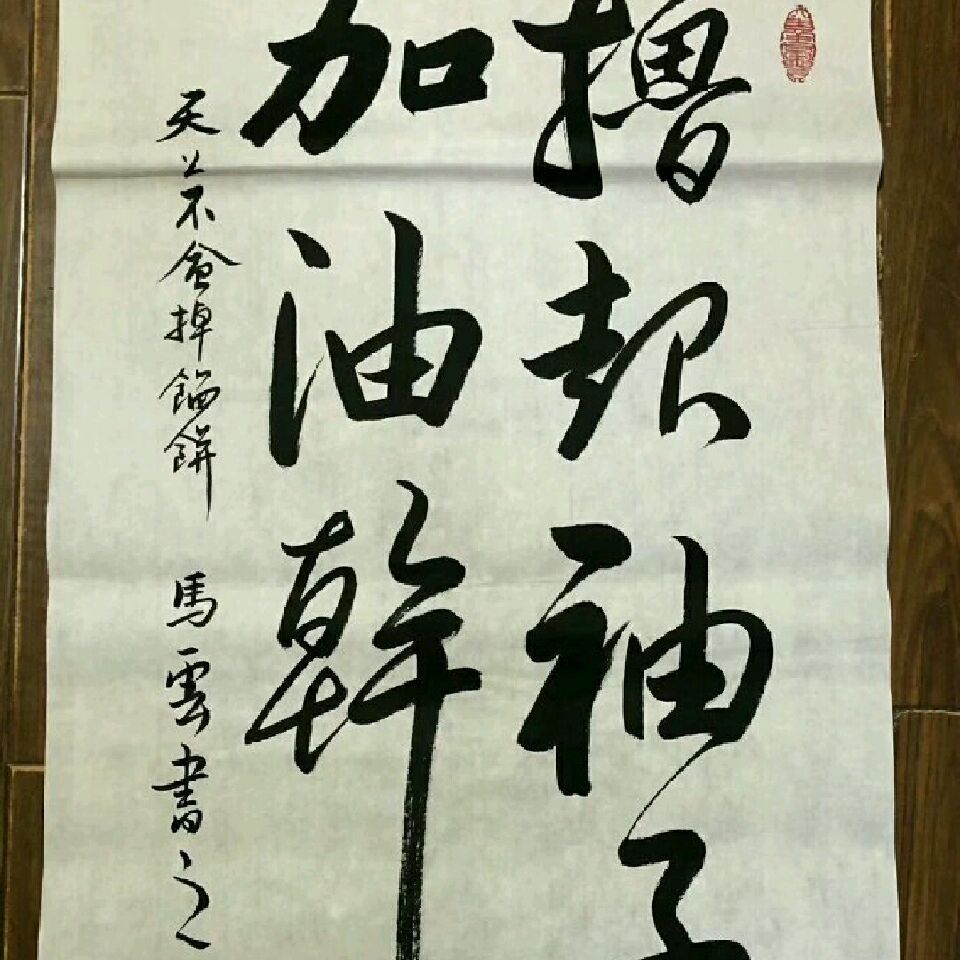 擼起袖子
加油幹
天上不會掉餡餅 馬雲書之